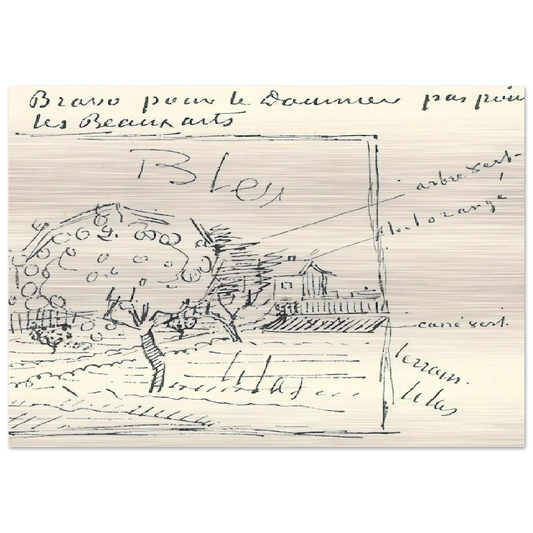 Bravo pour le Daumier pas pour
les Beaux arts
Bleu
arbre vert
toit orangé
carré vert.
terrain
lilas
lilas